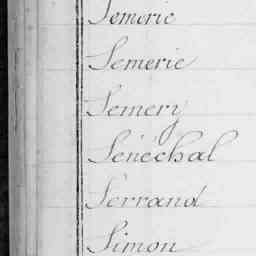 Semerie
Semerie
Semery
Sénéchal
Serrand
Simon